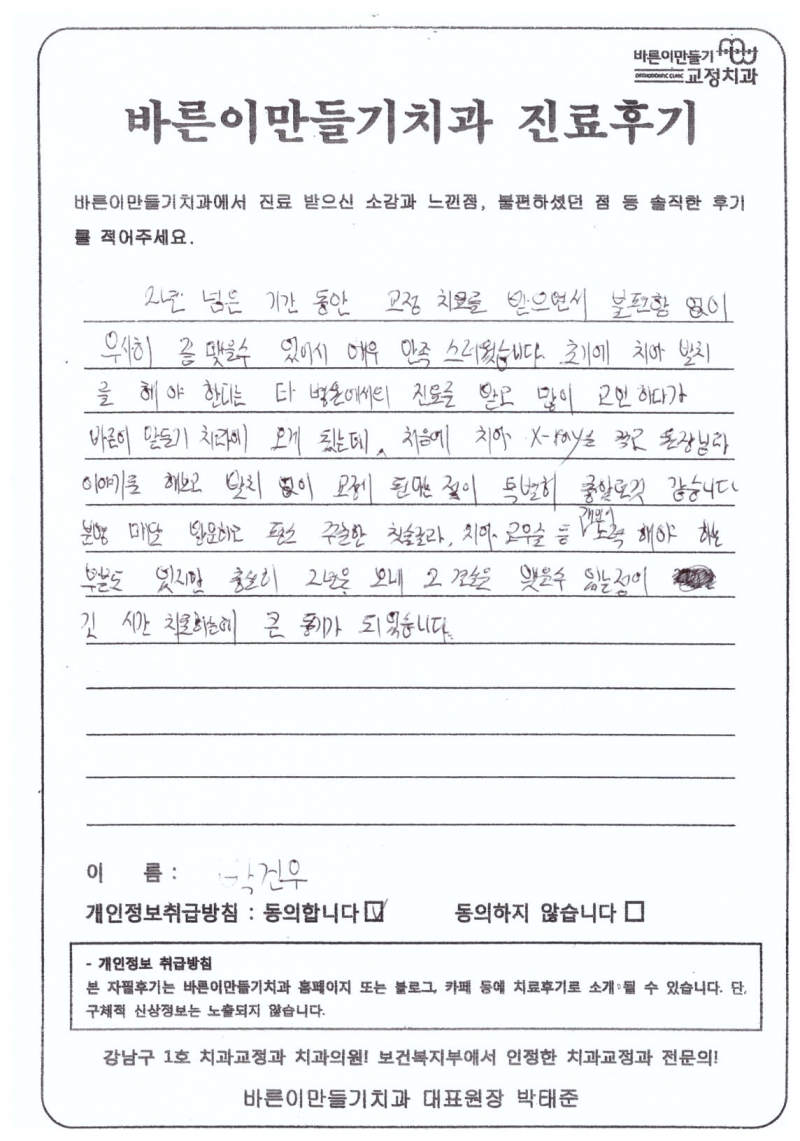 바른이만들기
ORTHODONTIC CLINIC 교정치과
바른이만들기치과 진료후기
바른이만들기치과에서 진료 받으신 소감과 느낀점, 불편하셨던 점 등 솔직한 후기
를 적어주세요.
2년 넘은 기간 동안 교정 치료를 받으면서 불편함 없이
무사히 끝 맺을수 있어서 매우 만족 스러웠습니다. 초기에 치아 발치
를 해야 한다는 타 병원에서의 진료를 받고 많이 고민하다가
바른이 만들기 치과에 오게 됬는데, 처음에 치아 X-ray를 찍고 원장님과
이야기를 해보고 발치 없이 교정이 된다는 점이 특별히 좋았던것 같습니다
분명 매달 방문하고 평소 꾸준한 칫솔질과, 치아 고무줄 등 개인이 노력 해야 하는
부분도 있지만 충분히 2년을 보내 그 결실을 맺을수 있는점이
긴 시간 치료하는데 큰 동기가 되었습니다.
이 름 : 박건우
개인정보취급방침 : 동의합니다 ☑ 동의하지 않습니다 ☐
- 개인정보 취급방침
본 자필후기는 바른이만들기치과 홈페이지 또는 블로그, 카페 등에 치료후기로 소개 될 수 있습니다. 단,
구체적 신상정보는 노출되지 않습니다.
강남구 1호 치과교정과 치과의원! 보건복지부에서 인정한 치과교정과 전문의!
바른이만들기치과 대표원장 박태준